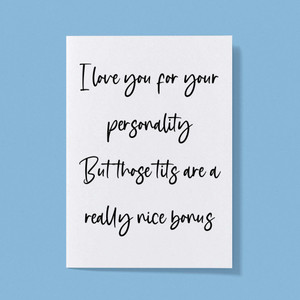 I love you for your
personality
But those tits are a
really nice bonus